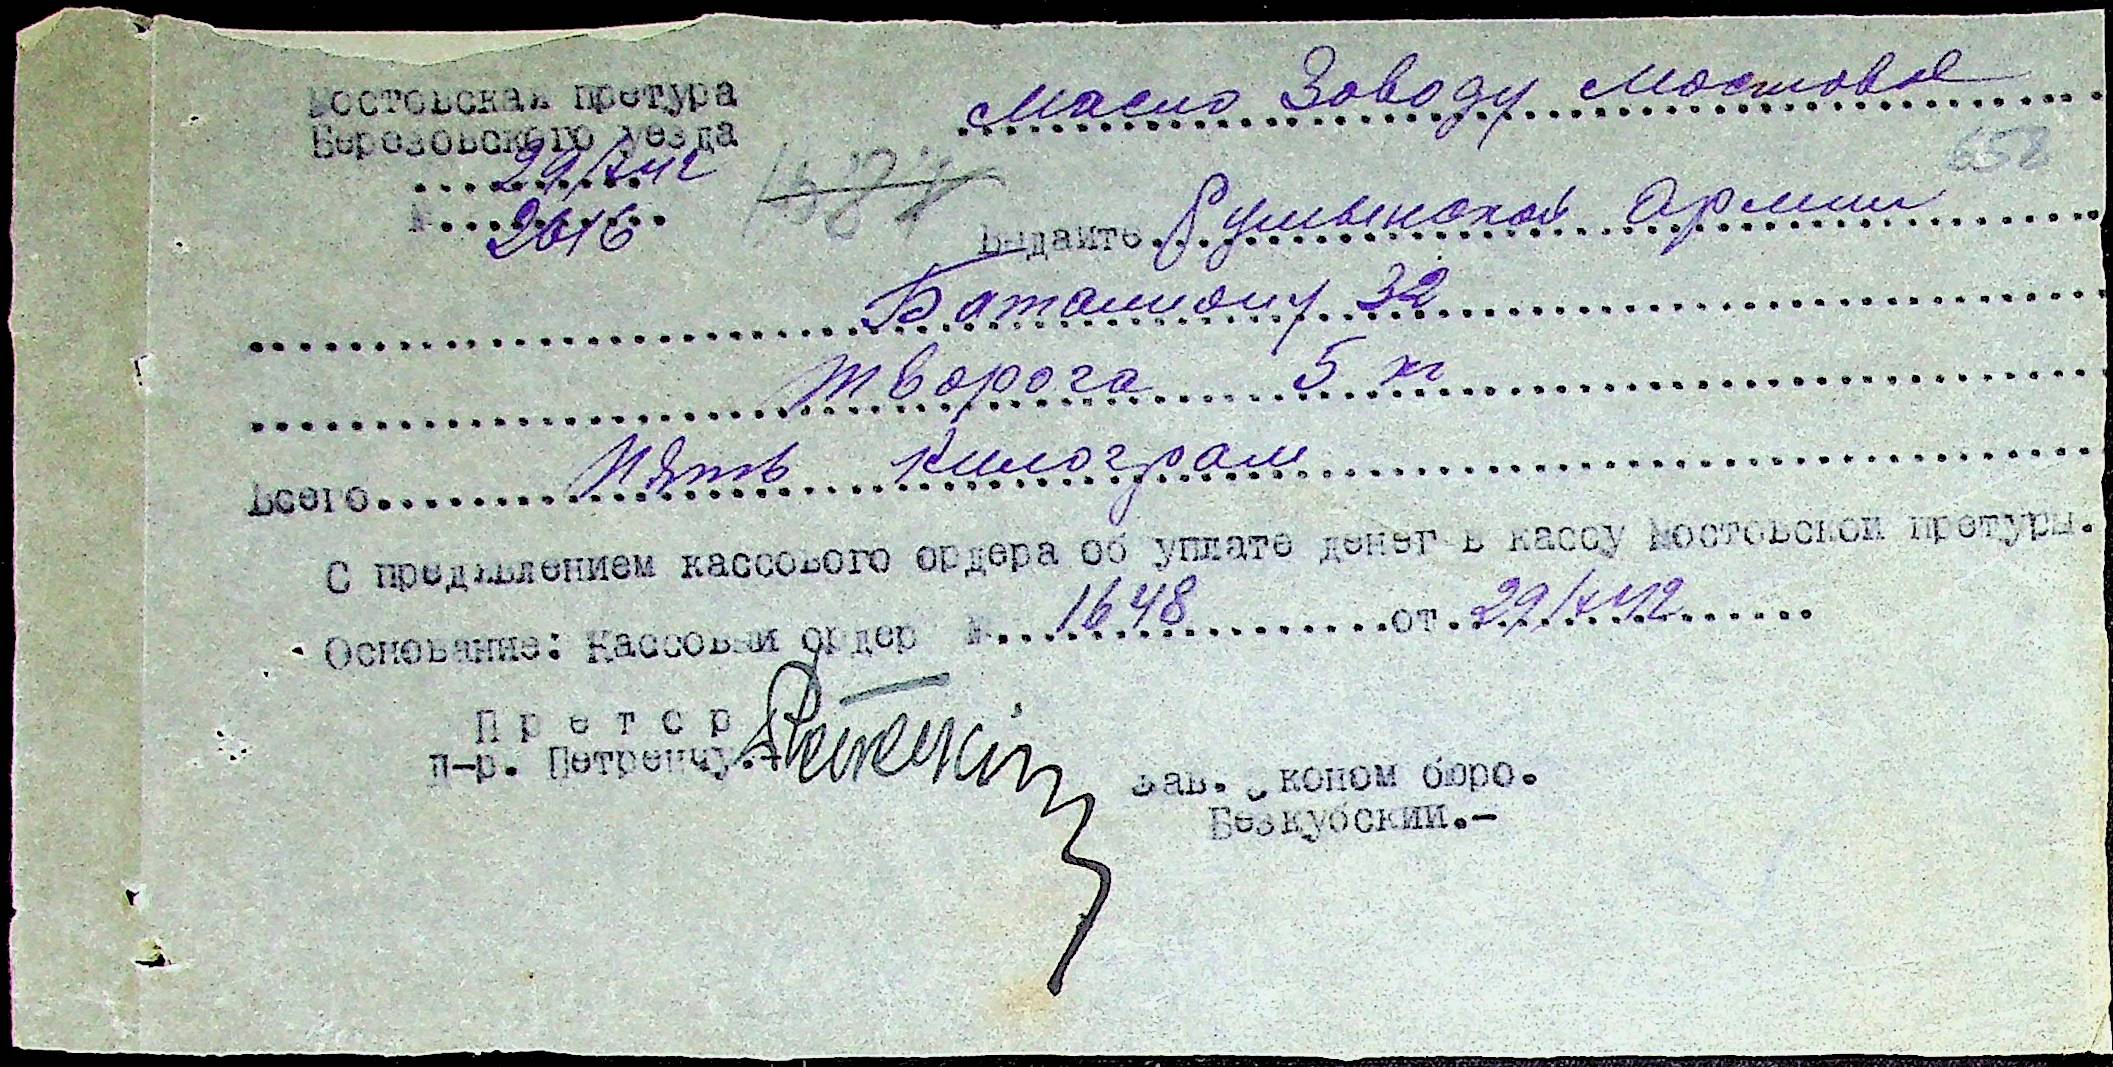 Мостовская претура
Березовского уезда
29/X 42
№ 2616
Масло Заводу Мостовая
658
Выдайте Румынской армии
Баталиону 32
Творога 5 кг
Всего Пять килограм
С предявлением кассового ордера об уплате денег в кассу Мостовской претуры.
Основание: Кассовый ордер № 1648 от 29/X 42
Претор
п-р. Петренчу.-
Зав. Эконом бюро.
Безкубский.-